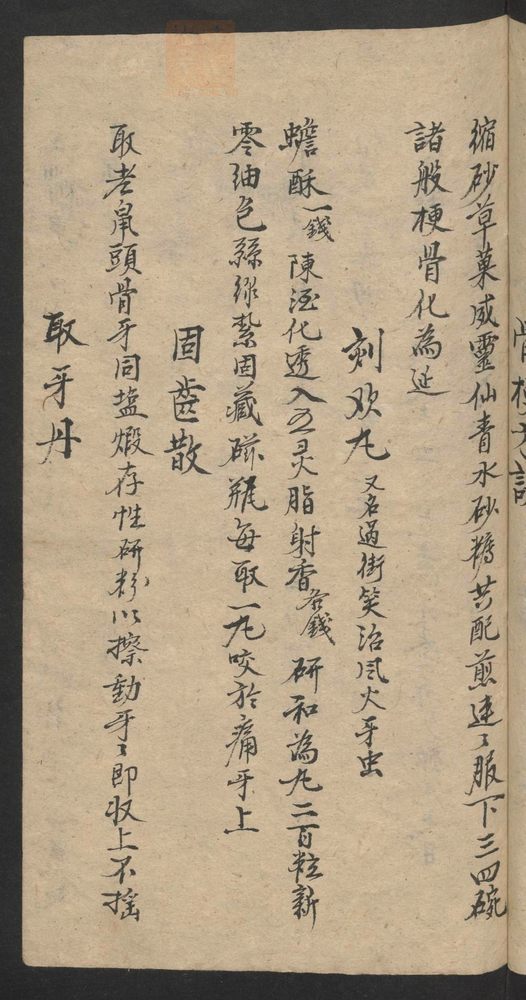 縮砂草菓威靈仙青水砂糖共配煎連々服下三四碗
諸般梗骨化為延
刻欢丸 又名過街笑治風火牙虫
蟾酥一錢陳酒化透入五灵脂射香各錢研和為丸二百粒新
零紬色絲線紮固藏磁瓶每取一丸咬於痛牙上
固齒散
取老鼠頭骨牙同塩煅存性研粉以擦動牙々即收上不搖
取牙丹